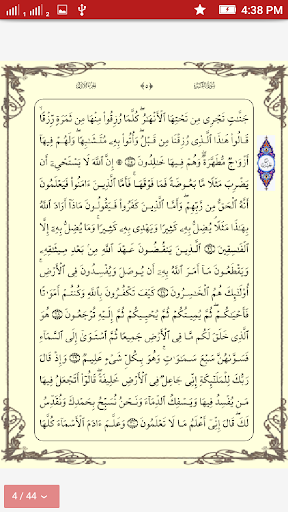 4:38 PM
جَنَّٰتٍ تَجْرِى مِن تَحْتِهَا ٱلْأَنْهَٰرُ ۖ كُلَّمَا رُزِقُوا۟ مِنْهَا مِن ثَمَرَةٍ رِّزْقًا
قَالُوا۟ هَٰذَا ٱلَّذِى رُزِقْنَا مِن قَبْلُ ۖ وَأُتُوا۟ بِهِۦ مُتَشَٰبِهًا ۖ وَلَهُمْ فِيهَآ
أَزْوَٰجٌ مُّطَهَّرَةٌ ۖ وَهُمْ فِيهَا خَٰلِدُونَ ۞ إِنَّ ٱللَّهَ لَا يَسْتَحْىِۦٓ أَن
يَضْرِبَ مَثَلًا مَّا بَعُوضَةً فَمَا فَوْقَهَا ۚ فَأَمَّا ٱلَّذِينَ ءَامَنُوا۟ فَيَعْلَمُونَ
أَنَّهُ ٱلْحَقُّ مِن رَّبِّهِمْ ۖ وَأَمَّا ٱلَّذِينَ كَفَرُوا۟ فَيَقُولُونَ مَاذَآ أَرَادَ ٱللَّهُ
بِهَٰذَا مَثَلًا ۘ يُضِلُّ بِهِۦ كَثِيرًا وَيَهْدِى بِهِۦ كَثِيرًا ۚ وَمَا يُضِلُّ بِهِۦٓ إِلَّا
ٱلْفَٰسِقِينَ ٱلَّذِينَ يَنقُضُونَ عَهْدَ ٱللَّهِ مِنۢ بَعْدِ مِيثَٰقِهِۦ
وَيَقْطَعُونَ مَآ أَمَرَ ٱللَّهُ بِهِۦٓ أَن يُوصَلَ وَيُفْسِدُونَ فِى ٱلْأَرْضِ ۚ
أُو۟لَٰٓئِكَ هُمُ ٱلْخَٰسِرُونَ كَيْفَ تَكْفُرُونَ بِٱللَّهِ وَكُنتُمْ أَمْوَٰتًا
فَأَحْيَٰكُمْ ۖ ثُمَّ يُمِيتُكُمْ ثُمَّ يُحْيِيكُمْ ثُمَّ إِلَيْهِ تُرْجَعُونَ هُوَ
ٱلَّذِى خَلَقَ لَكُم مَّا فِى ٱلْأَرْضِ جَمِيعًا ثُمَّ ٱسْتَوَىٰٓ إِلَى ٱلسَّمَآءِ
فَسَوَّىٰهُنَّ سَبْعَ سَمَٰوَٰتٍ ۚ وَهُوَ بِكُلِّ شَىْءٍ عَلِيمٌ وَإِذْ قَالَ
رَبُّكَ لِلْمَلَٰٓئِكَةِ إِنِّى جَاعِلٌ فِى ٱلْأَرْضِ خَلِيفَةً ۖ قَالُوٓا۟ أَتَجْعَلُ فِيهَا
مَن يُفْسِدُ فِيهَا وَيَسْفِكُ ٱلدِّمَآءَ وَنَحْنُ نُسَبِّحُ بِحَمْدِكَ وَنُقَدِّسُ
لَكَ ۖ قَالَ إِنِّىٓ أَعْلَمُ مَا لَا تَعْلَمُونَ وَعَلَّمَ ءَادَمَ ٱلْأَسْمَآءَ كُلَّهَا
4 / 44